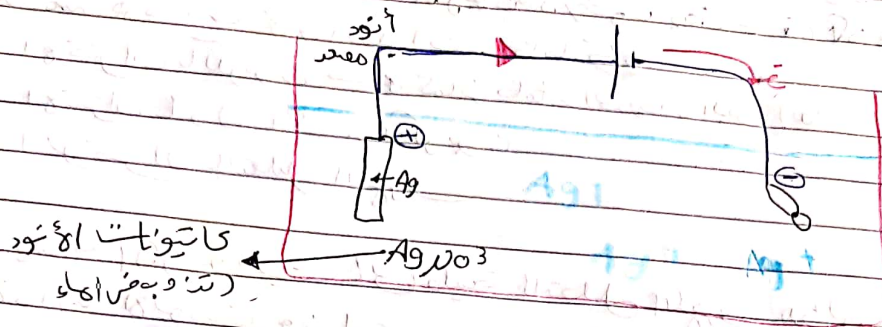 أنود
مصدر
e⁻
+
−
Ag
Ag+
AgNO3
كاتيونات الأنود
تذوب في الماء